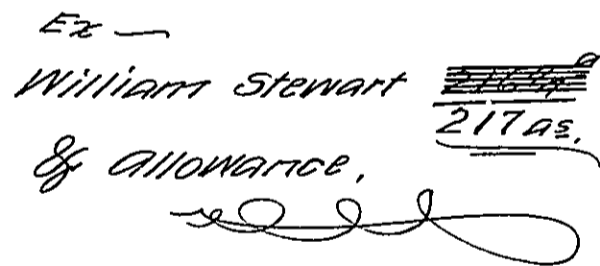 Ex —
William Stewart
217 as.
& allowance,